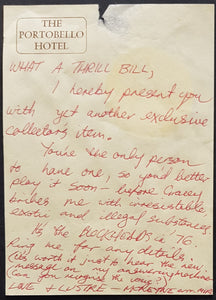 THE
PORTOBELLO
HOTEL
WHAT A THRILL BILL,
I hereby present you
with yet another exclusive
collectors item.
You're the only person
to have one, so you'd better
play it soon - before Gracey
bribes me with irresistable
exotic and illegal substances
Its the ROCKHEADS in '76.
Ring me for any details.
(its worth it just to hear the new
message on my answering machine
Can you recognise the song?)
LOVE & LUSTRE -